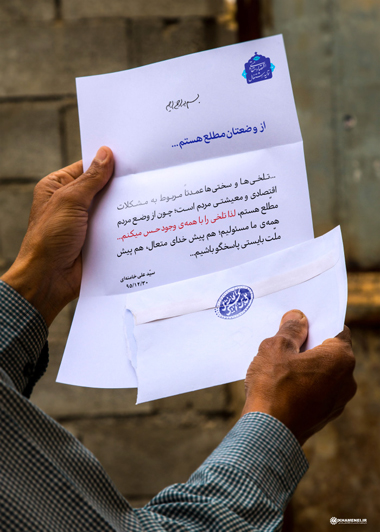 از وضعتان مطلع هستم...
...تلخی‌ها و سختی‌ها عمدتاً مربوط به مشکلات
اقتصادی و معیشتی مردم است؛ چون از وضع مردم
مطّلع هستم، لذا تلخی را با همه‌ی وجود حس میکنم...
همه‌ی ما مسئولیم؛ هم پیش خدای متعال، هم پیش
ملّت بایستی پاسخگو باشیم...
سیّد علی خامنه‌ای
۹۵/۱۲/۳۰
KHAMENEI.IR